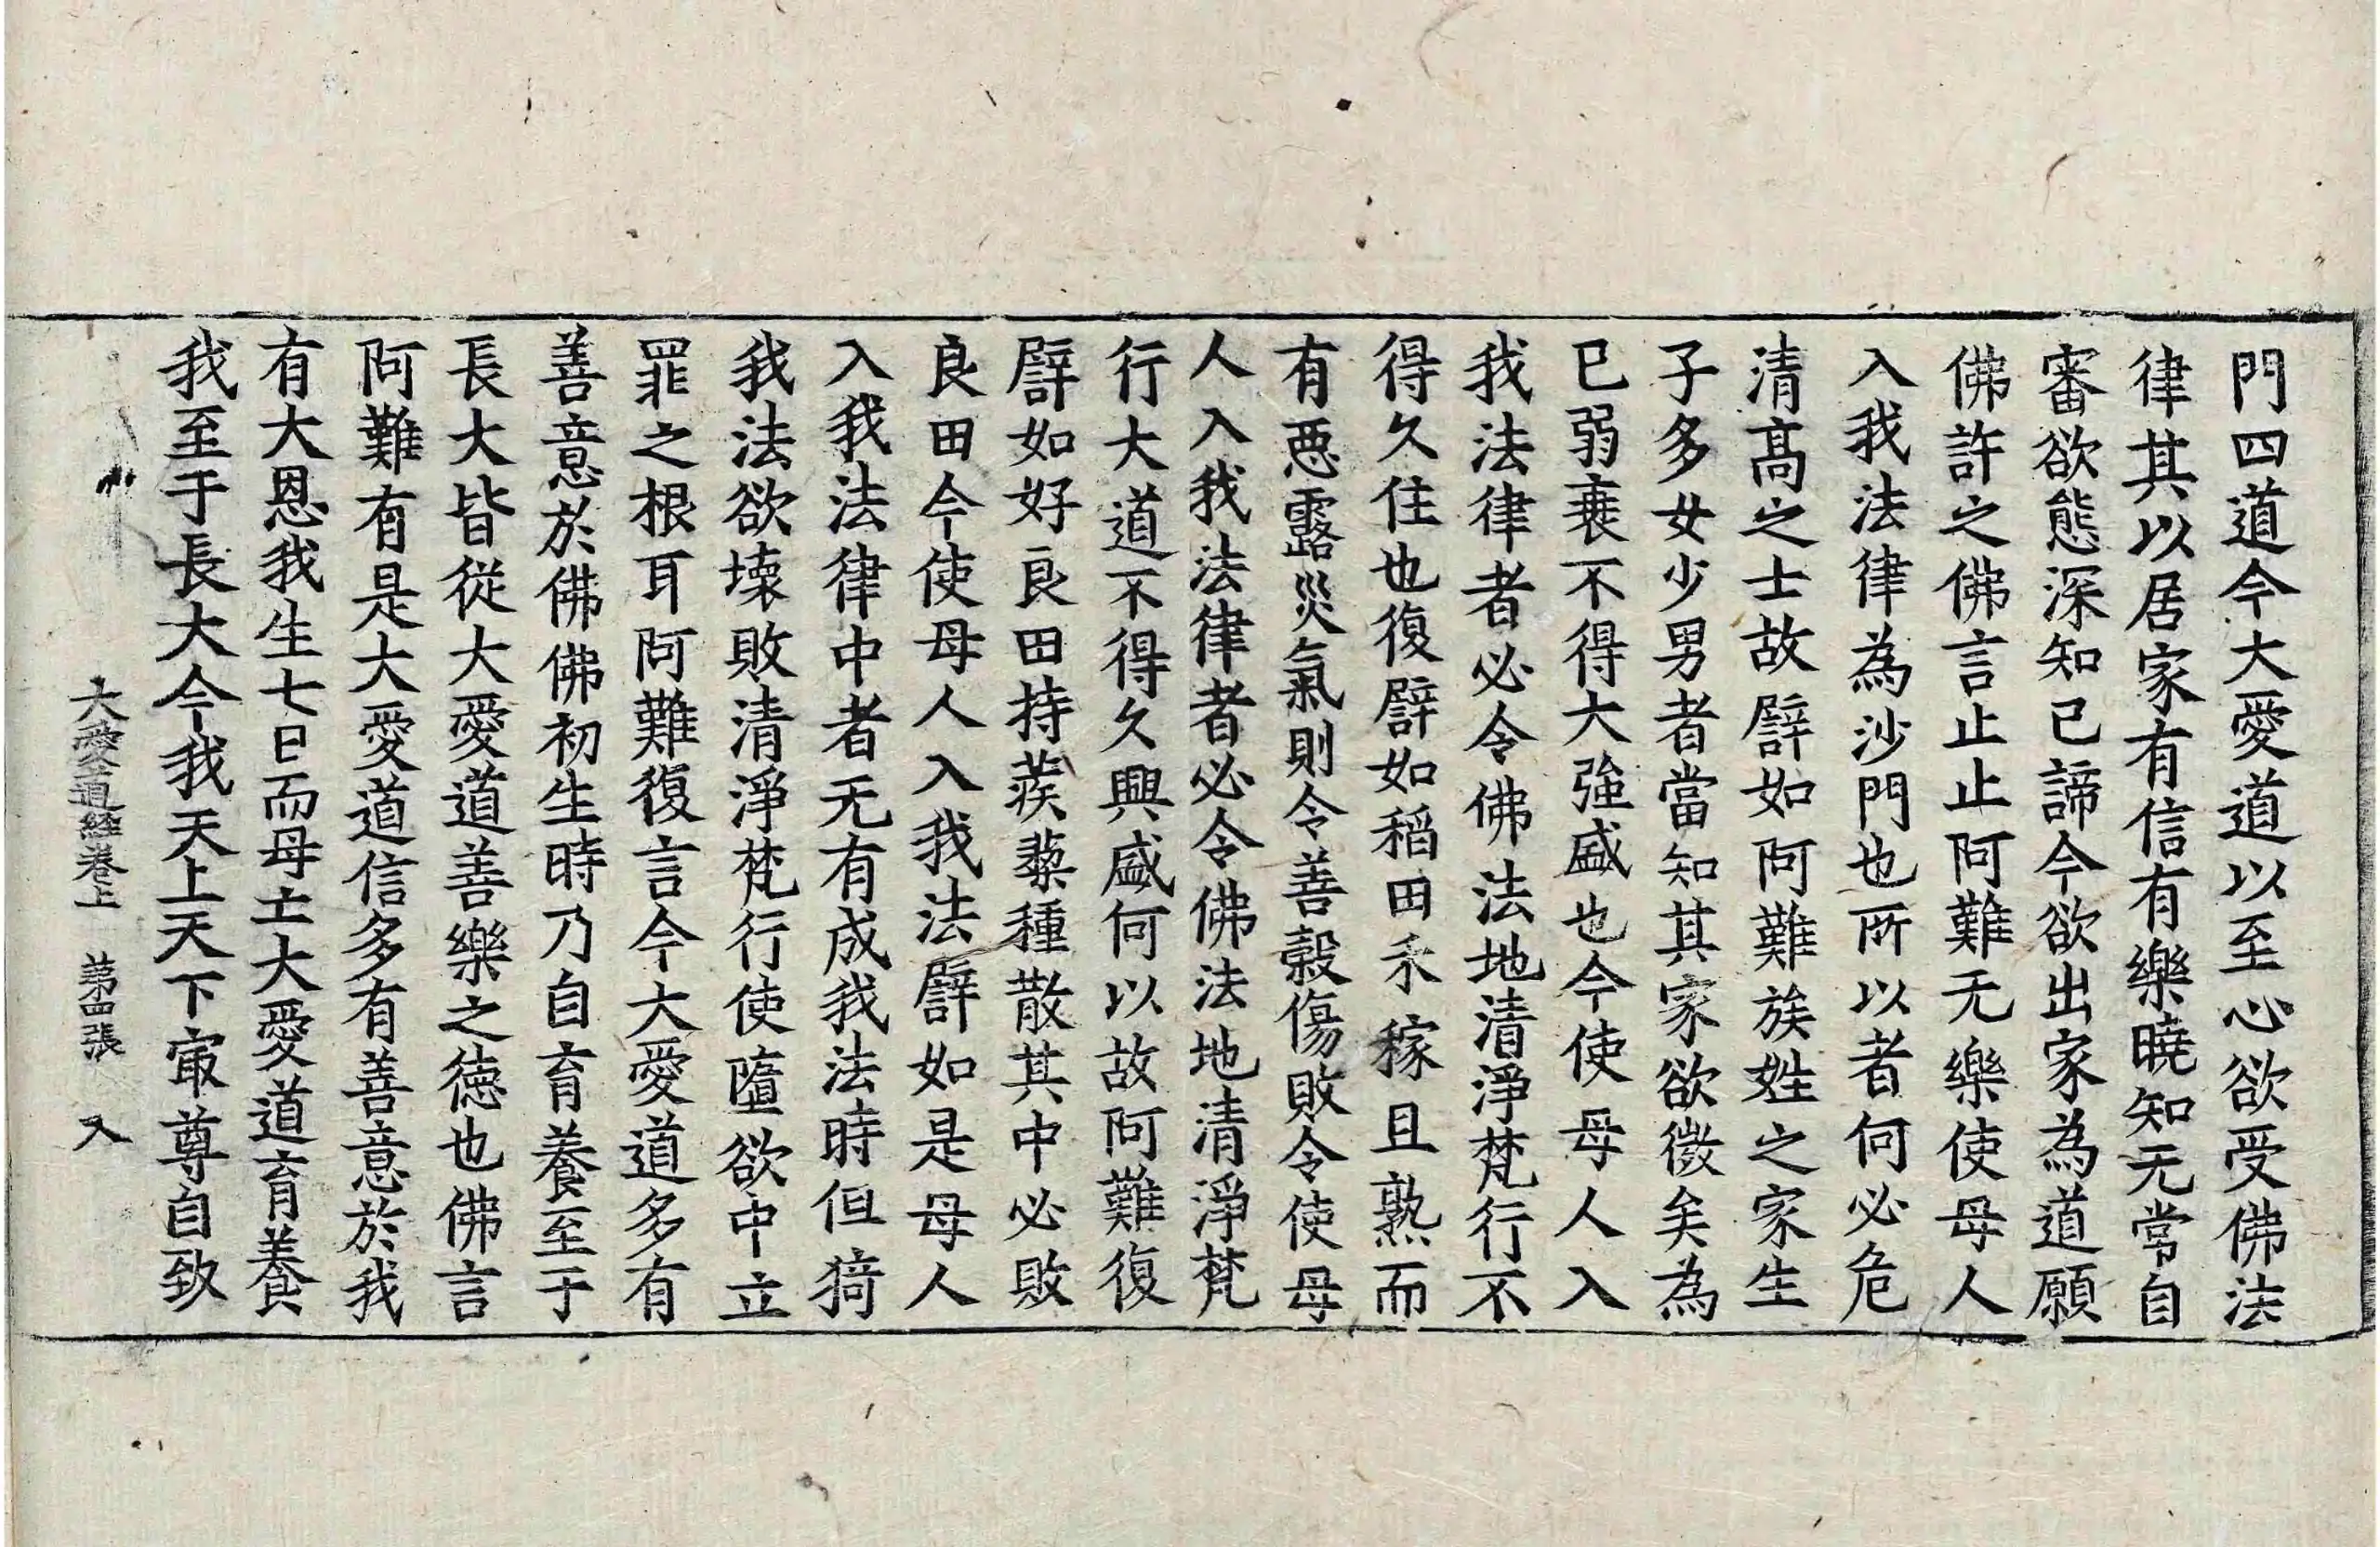 門四道今大愛道以至心欲受佛法
律其以居家有信有樂曉知无常自
審欲態深知已諦今欲出家為道願
佛許之佛言止止阿難无樂使母人
入我法律為沙門也所以者何必危
清髙之士故譬如阿難族姓之家生
子多女少男者當知其家欲微矣為
已弱衰不得大強盛也今使母人入
我法律者必令佛法地清淨梵行不
得久住也復譬如稻田禾稼且熟而
有惡露災氣則令善穀傷敗令使母
人入我法律者必令佛法地清淨梵
行大道不得久興盛何以故阿難復
譬如好良田持蒺䔧種散其中必敗
良田今使母人入我法譬如是母人
入我法律中者无有成我法時但猗
我法欲壞敗清淨梵行使墮欲中立
罪之根耳阿難復言今大愛道多有
善意於佛佛初生時乃自育養至于
長大皆從大愛道善樂之德也佛言
阿難有是大愛道信多有善意於我
有大恩我生七日而母亡大愛道育養
我至于長大今我天上天下㝡尊自致
大愛道經卷上 苐四張 入